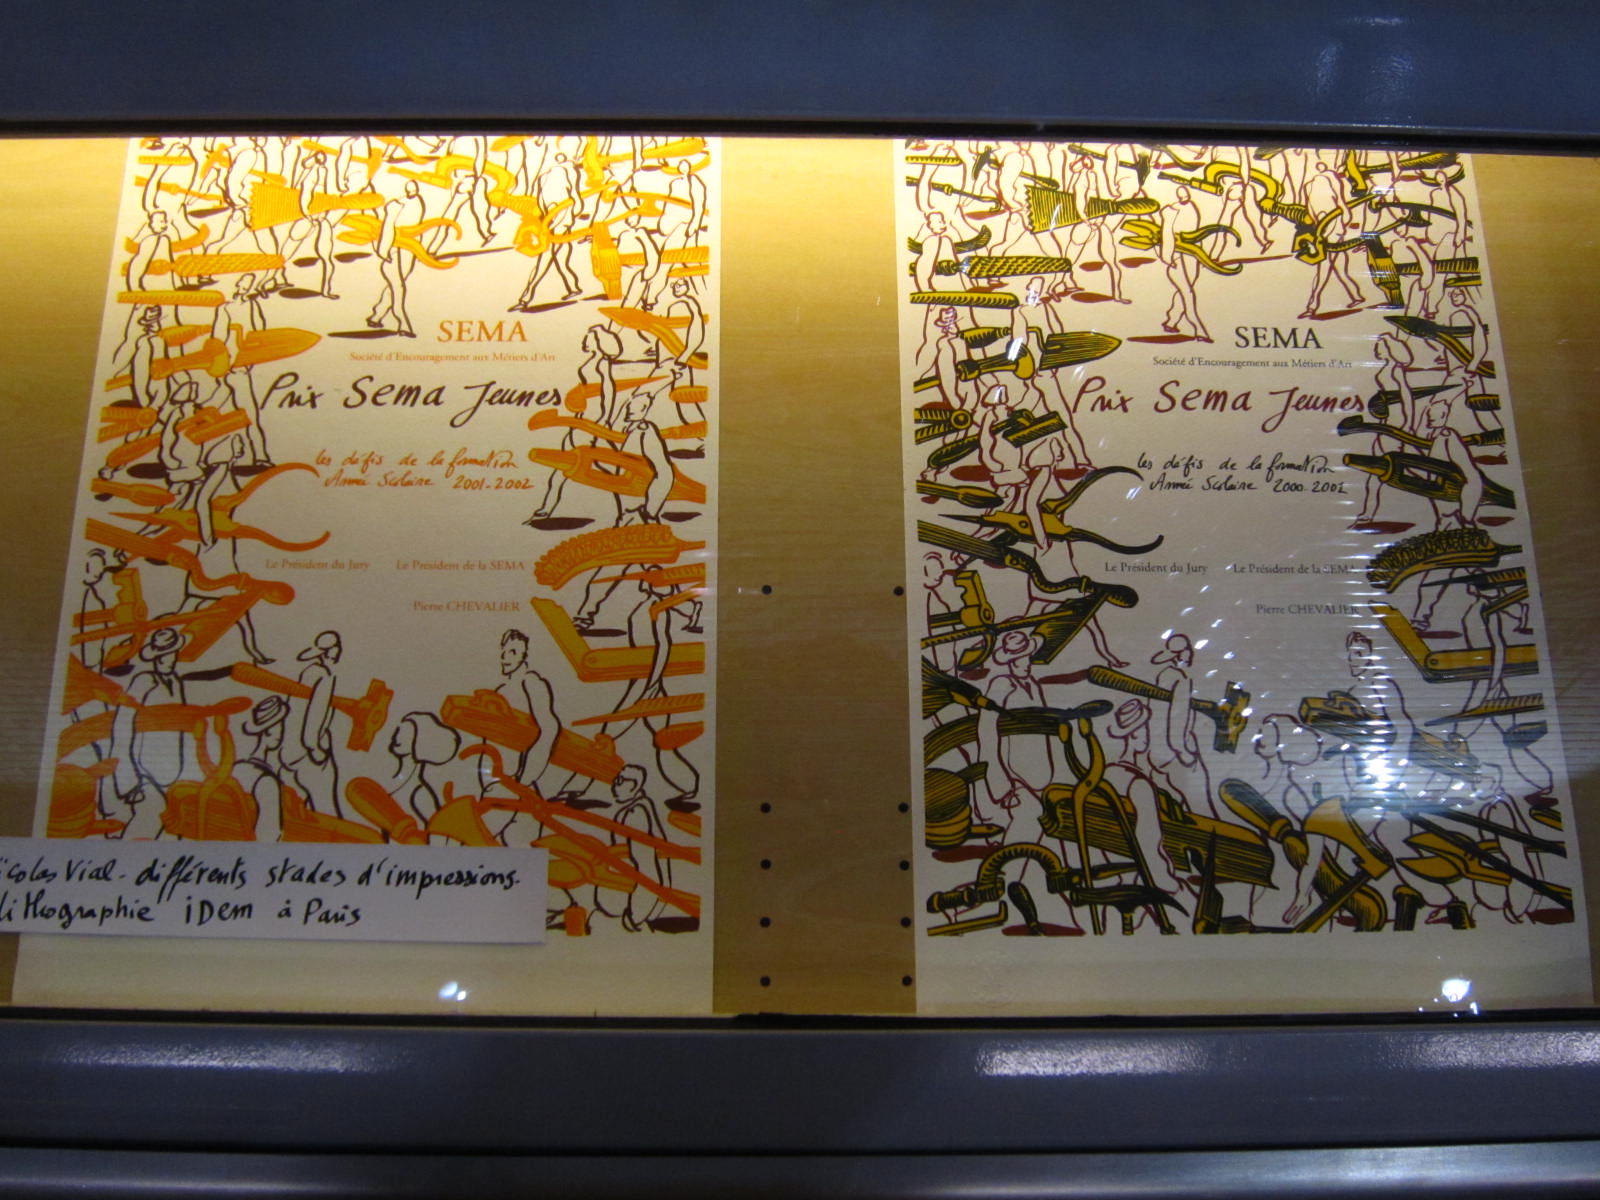 SEMA
Société d'Encouragement aux Métiers d'Art
Prix Sema Jeunes
les défis de la formation
Année Scolaire 2001-2002
Le Président du Jury Le Président de la SEMA
Pierre CHEVALIER
icolas Vial - différents stades d'impressions.
lithographie iDem à Paris
SEMA
Société d'Encouragement aux Métiers d'Art
Prix Sema Jeunes
les défis de la formation
Année Scolaire 2000-2001
Le Président du Jury Le Président de la SEMA
Pierre CHEVALIER